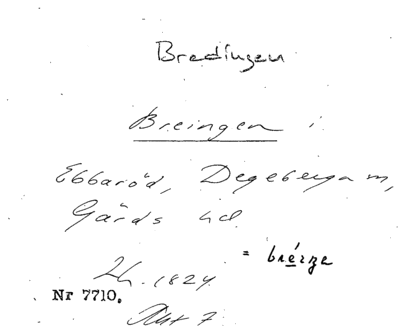 Bredingen
Breingen i
Ebbaröd, Degeberga sn,
Gärds hd.
= brérze
Lh. 1824.
Nr 7710.
Akt 7